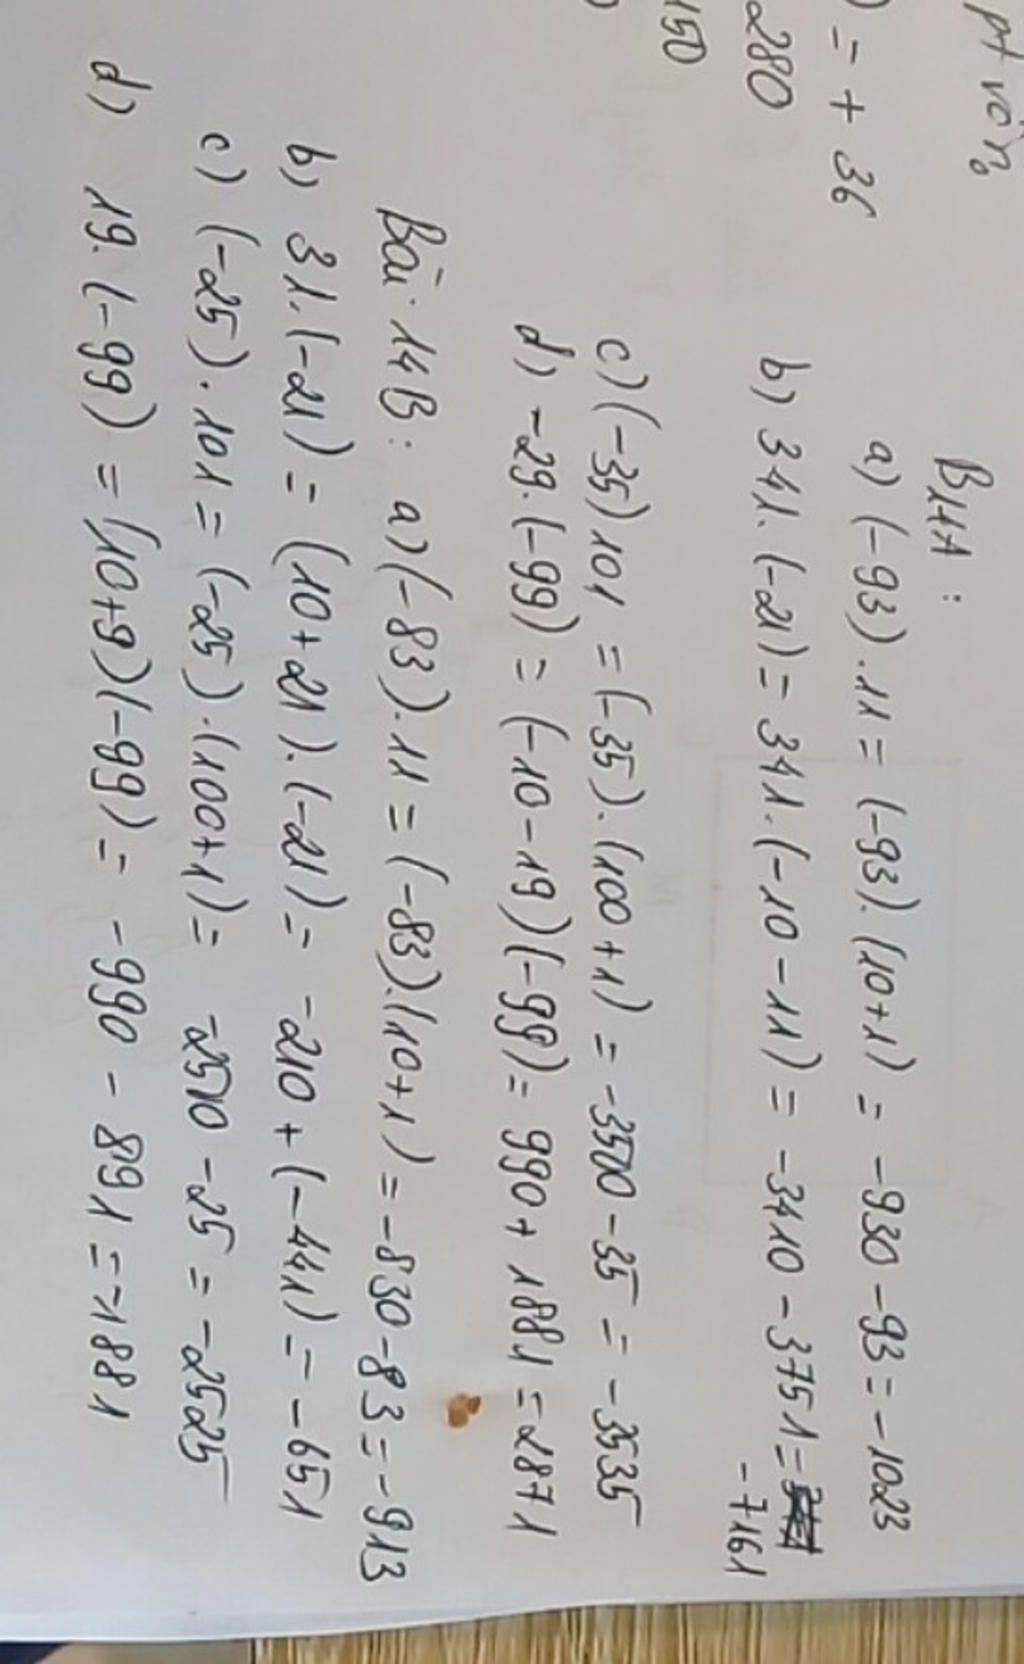 pt vòn
) = + 36
280
150
B14A :
a) (-93).11 = (-93).(10+1) = -930-93 = -1023
b) 341.(-21) = 341.(-10-11) = -3410-3751 =
-7161
c) (-35) 101 = (-35).(100+1) = -3500-35 = -3535
d) -29.(-99) = (-10-19)(-99) = 990+1881 = 2871
Bài 14B: a) (-83).11 = (-83).(10+1) = -830-83 = -913
b) 31.(-21) = (10+21).(-21) = -210+(-441) = -651
c) (-25).101 = (-25).(100+1) = -2500-25 = -2525
d) 19.(-99) = (10+9)(-99) = -990-891 = -1881